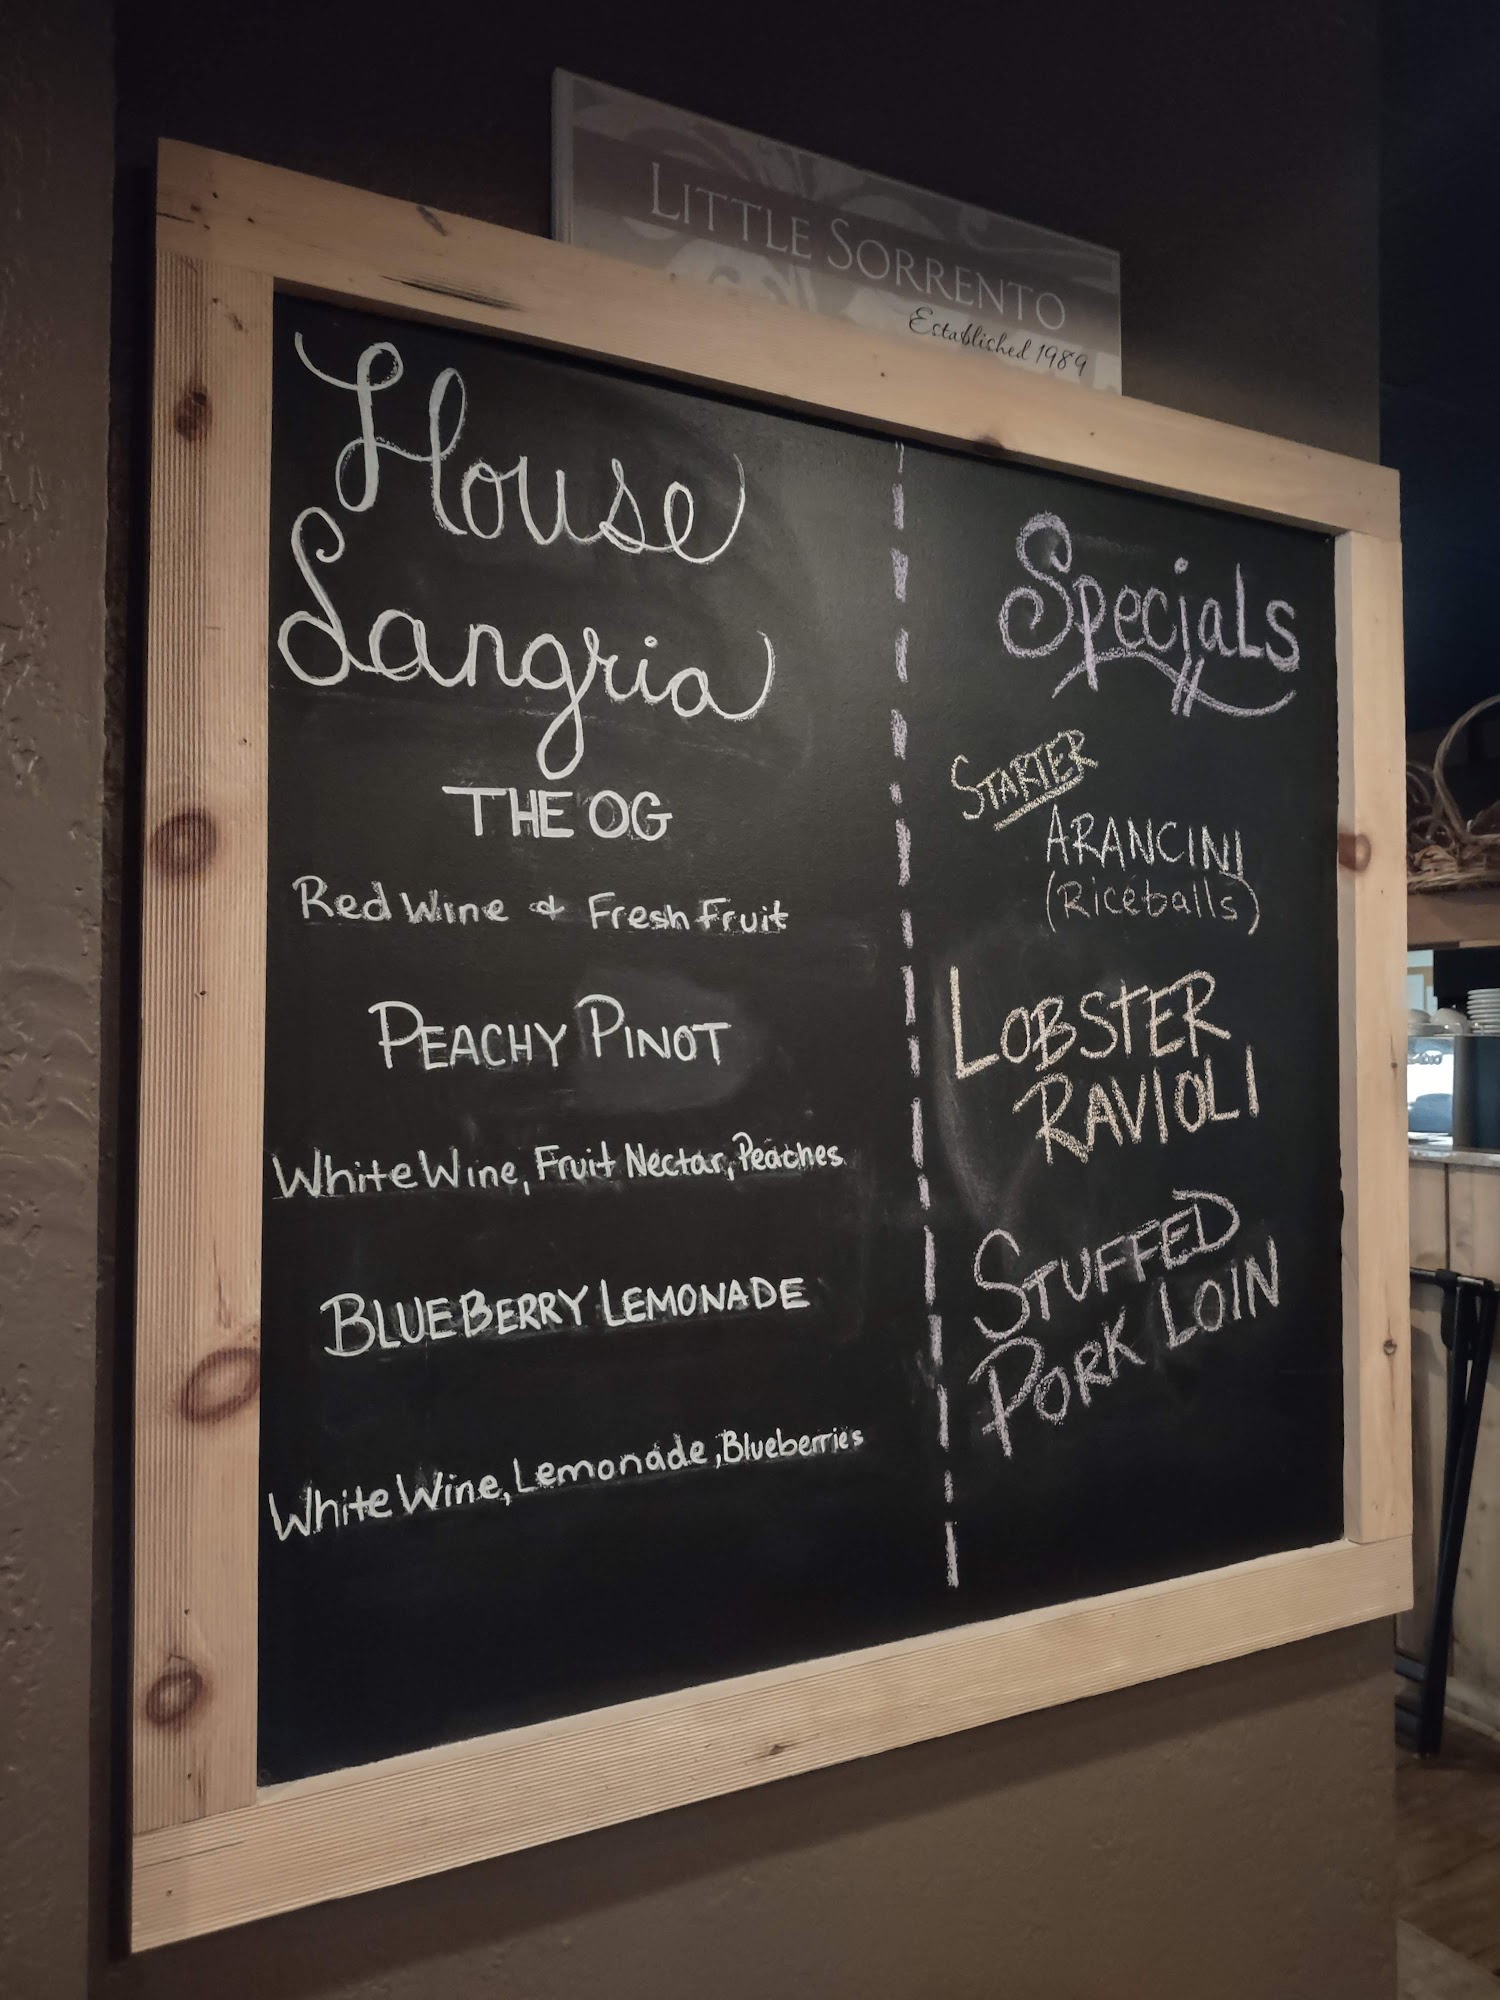 LITTLE SORRENTO
Established 1989
House
Sangria
THE OG
Red Wine & Fresh Fruit
PEACHY PINOT
White Wine, Fruit Nectar, Peaches
BLUEBERRY LEMONADE
White Wine, Lemonade, Blueberries
Specials
STARTER
ARANCINI
(Riceballs)
LOBSTER
RAVIOLI
STUFFED
PORK LOIN